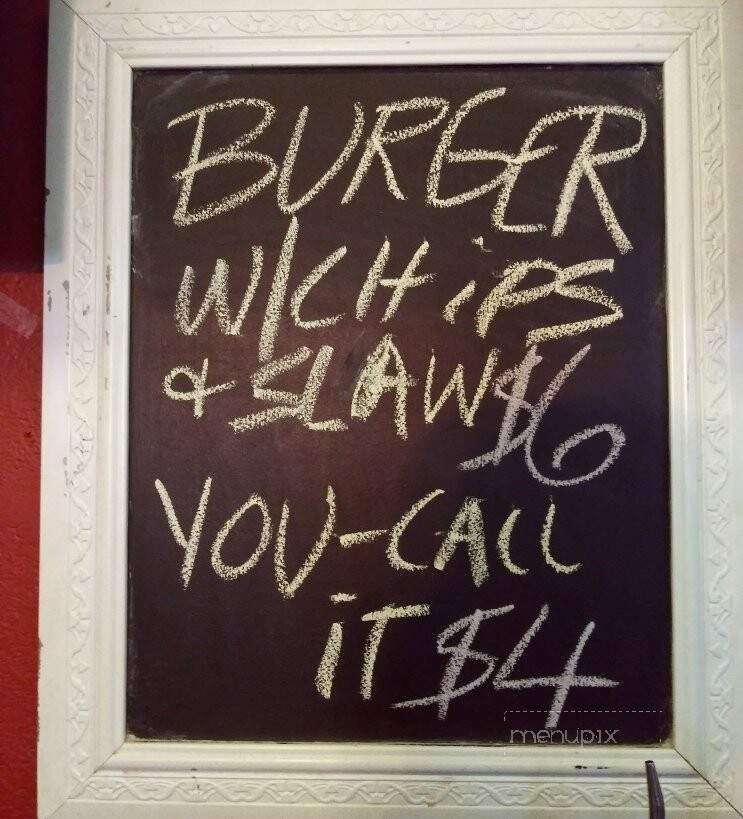 BURGER
W/CHiPS
& SLAW $6
YOU-CALL
iT $4
menupix